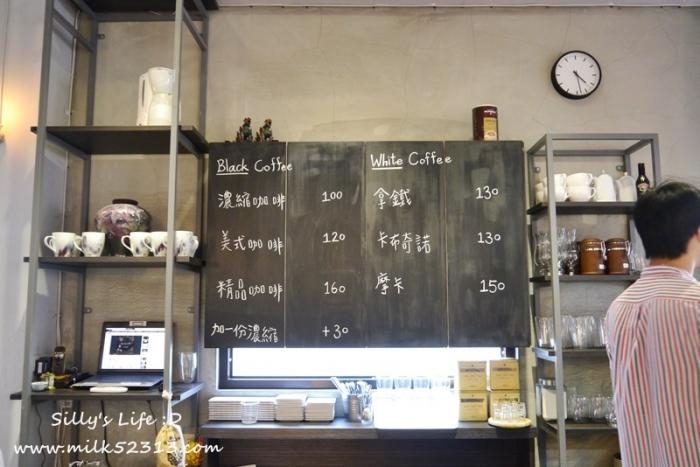 Black Coffee
濃縮咖啡 100
美式咖啡 120
精品咖啡 160
加一份濃縮 +30
White Coffee
拿鐵 130
卡布奇諾 130
摩卡 150
Silly's Life :D
www.milk52313.com